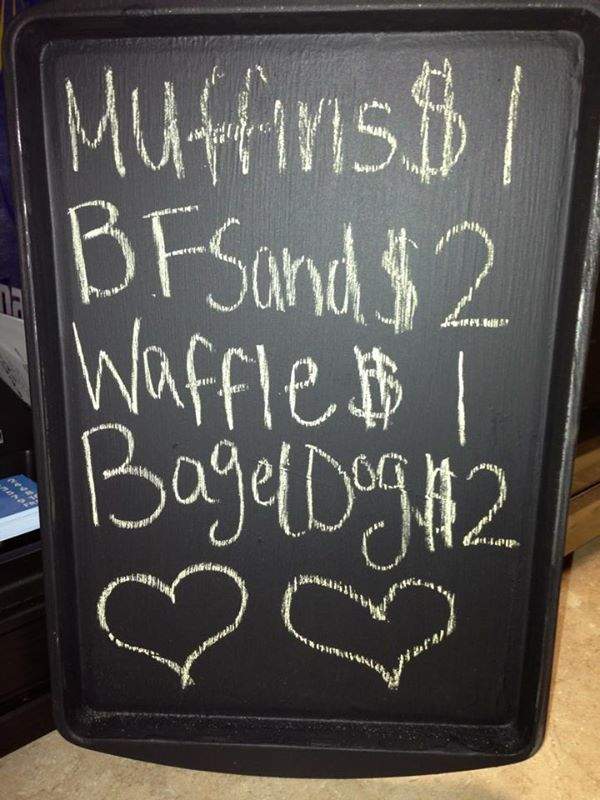 Muffins $1
BFSand $2
Waffle $1
Bagel Dog $2